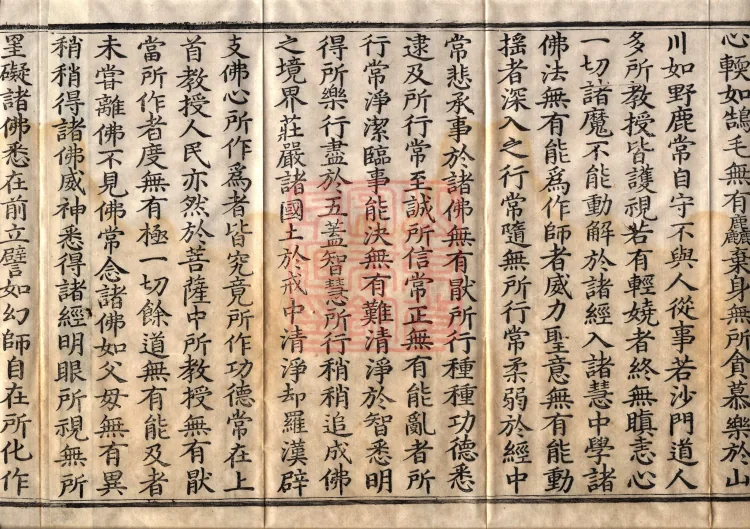 心輭如鵠毛無有麤棄身無所貪慕樂於山
川如野鹿常自守不與人從事若沙門道人
多所教授皆護視若有輕嬈者終無瞋恚心
一切諸魔不能動解於諸經入諸慧中學諸
佛法無有能爲作師者威力聖意無有能動
搖者深入之行常隨無所行常柔弱於經中
常悲承事於諸佛無有猒所行種種功德悉
逮及所行常至誠所信常正無有能亂者所
行常淨潔臨事能決無有難清淨於智悉明
得所樂行盡於五蓋智慧所行稍稍追成佛
之境界莊嚴諸國土於戒中清淨却羅漢辟
支佛心所作爲者皆究竟所作功德常在上
首教授人民亦然於菩薩中所教授無有猒
當所作者度無有極一切餘道無有能及者
未甞離佛不見佛常念諸佛如父母無有異
稍稍得諸佛威神悉得諸經明眼所視無所
罣礙諸佛悉在前立譬如幻師自在所化作